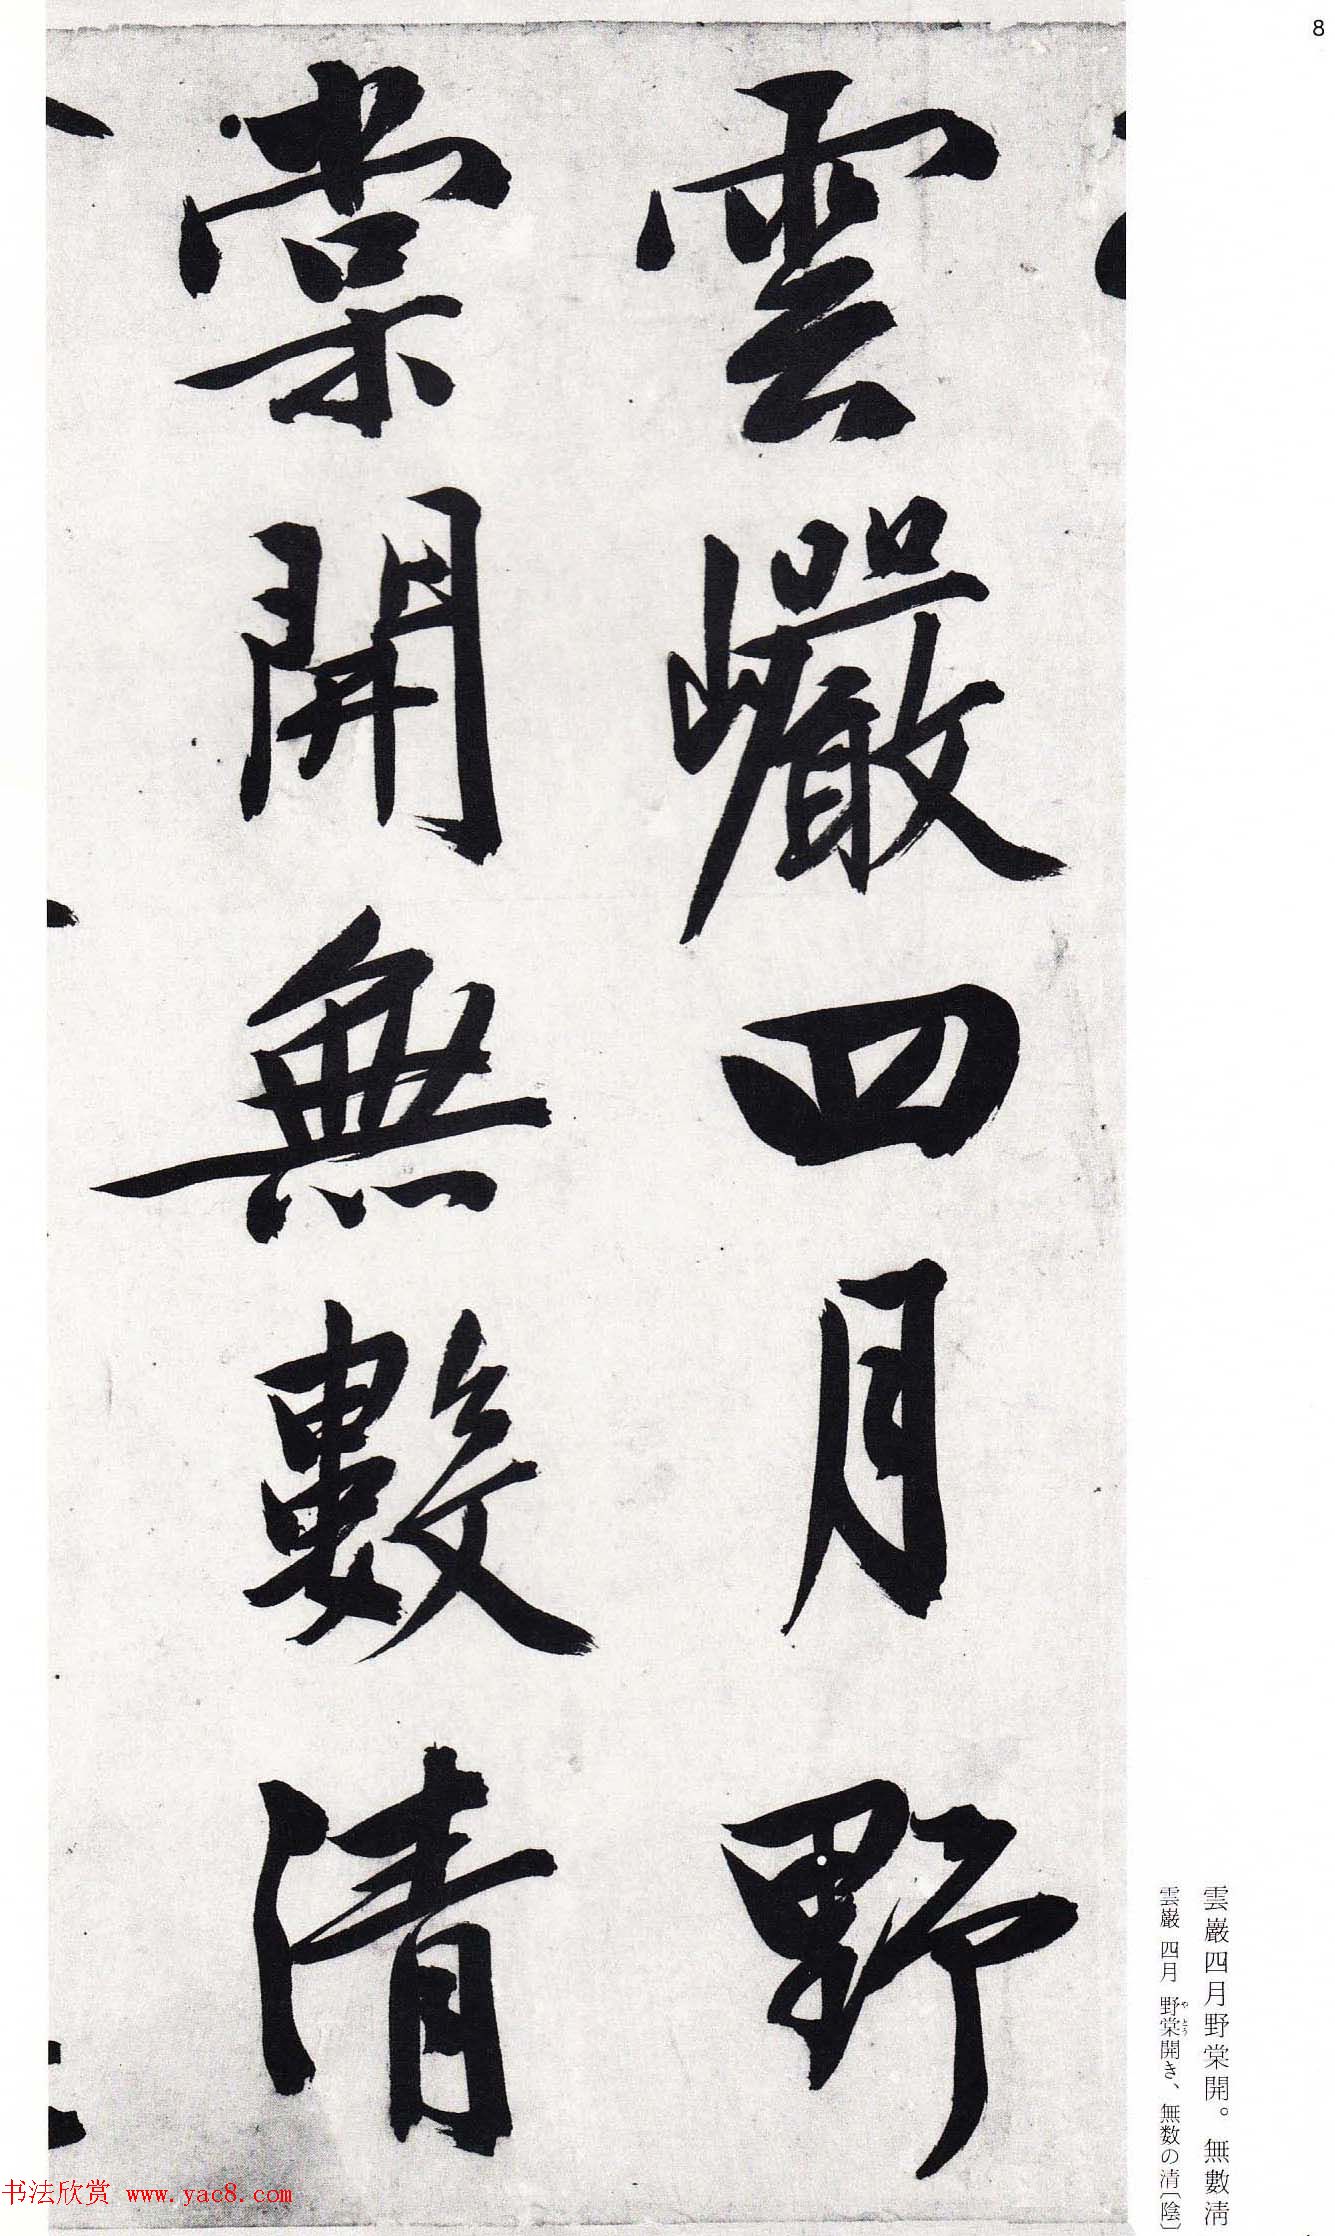 8
雲巖四月野
棠開無數清
雲巌四月野棠開。無數淸
雲巌 四月 野棠開き、無数の清〔陰〕
やとう
书法欣赏 www.yac8.com